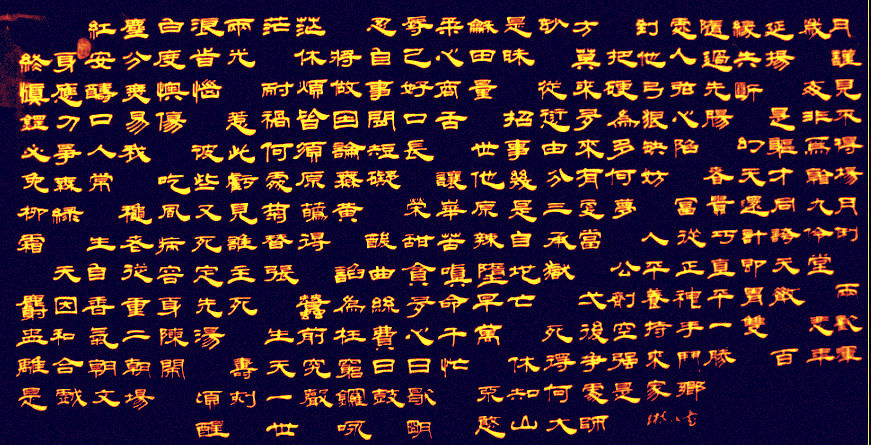 紅塵白浪兩茫茫 忍辱柔龢是妙方 到處隨緣延歲月
終身安分度皆光 休將自己心田昧 莫把他人過失揚 謹
慎應醻爽懊惱 耐煩做事好商量 從來硬弓弦先斷 每見
鋼刀口易傷 惹禍皆因閒口舌 招愆多為狠心腸 是非不
必爭人我 彼此何須論短長 世事由來多缺陷 幻軀焉得
免無常 吃些虧處原無礙 讓他幾分有何妨 春天才看楊
柳綠 穐風又見菊蘤黃 榮華原是三更夢 富貴還同九月
霜 生老病死誰替得 酸甜苦辣自承當 人從巧計誇伶俐
天自從容定主張 諂曲貪嗔墮地獄 公平正直即天堂
麝因香重身先死 蠶為絲多命早亡 弌劑養神平胃散 兩
盅和氣二陳湯 生前枉費心千萬 死後空持手一雙 悲歡
離合朝朝鬧 壽夭究窮日日忙 休得爭强來鬥勝 百年渾
是戲文場 頃刻一聲鑼鼓歇 不知何處是家鄉
醒世歌 明 憨山大師